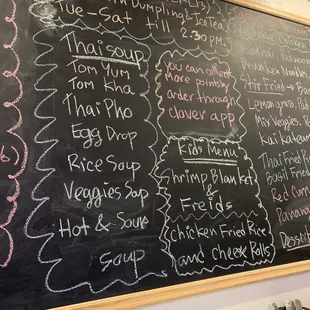 Dumpling + Ice Tea
Tue-Sat till 2:30 PM
Thai soup
Tom Yum
Tom Kha
Thai Pho
Egg Drop
Rice Soup
Veggies Sop
Hot & Sour
soup
you can collect
More points by
order through
clover app
Kids Menu
Shrimp Blanket
&
Freids
chicken Fried Rice
and cheese Rolls
Drunken Noodles
Stir Fried
Lemongrass
Mix Veggies
Kai Kateam
Thai Fried
Basil Fried
Red Curr
Panang
Dessert